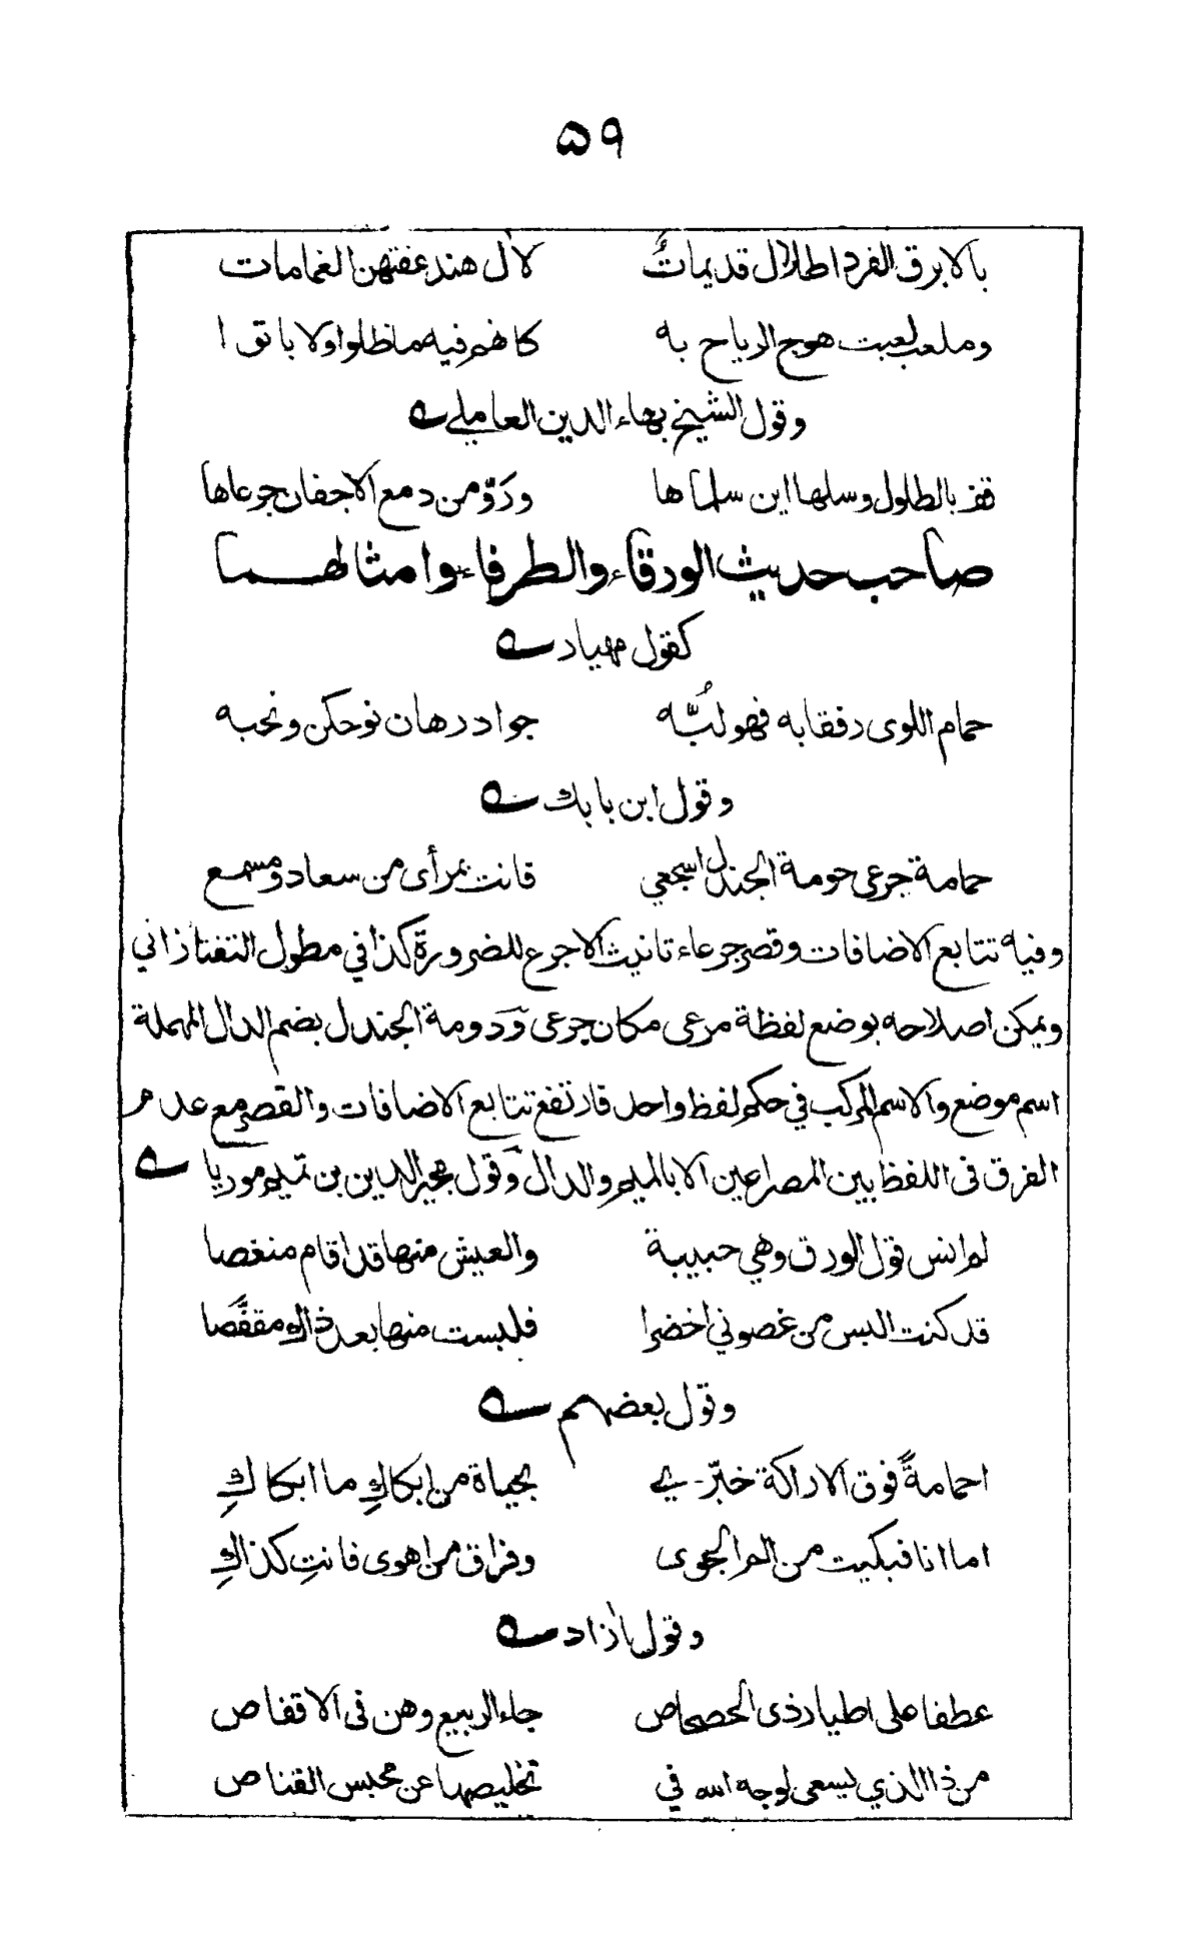 ٥٩
بالابرق الفرد اطلال قديماتٌ لاٰل هند عفتهن الغمامات
وملعب لعبت هوج الرياح به كانهم فيه ما ظلوا ولا باتوا
وقول الشيخ بهاء الدين العاملي
قف بالطلول وسلها اين سلماها وروّ من دمع الاجفان جرعاها
صاحب حديث الورقاء والطرفاء وامثالهما
كقول مهيار
حمام اللوى رفقا به فهو لبُّه جواد رهان نوحكن ونحبه
وقول ابن بابك
حمامة جرعى حومة الجندل اسجعي فانت بمرأى من سعاد ومسمع
وفيه تتابع الاضافات وقصر جرعاء تانيث الاجرع للضرورة كذا في مطول التفتازاني
ويمكن اصلاحه بوضع لفظة مرعى مكان جرعى ودومة الجندل بضم الدال المهملة
اسم موضع والاسم المركب في حكم لفظ واحد فارتفع تتابع الاضافات والقصر مع عدم
الفرق فى اللفظ بين المصراعين الا بالميم والدال وقول مجير الدين بن تميم موريا
لم انس قول الورق وهي حبيبة والعيش منها قد اقام منغصا
قد كنت البس من غصوني اخضرا فلبست منها بعد ذاك مقفّصا
وقول بعضهم
احمامةً فوق الاراكة خبّري بحياة من ابكاكِ ما ابكاكِ
اما انا فبكيت من الم الجوى وفراق من اهوى فانتِ كذاكِ
وقول اٰزاد
عطفا على اطيار ذى الحصحاص جاء الربيع وهن فى الاقفاص
من ذا الذي يسعى لوجه الله في تخليصها عن محبس القناص